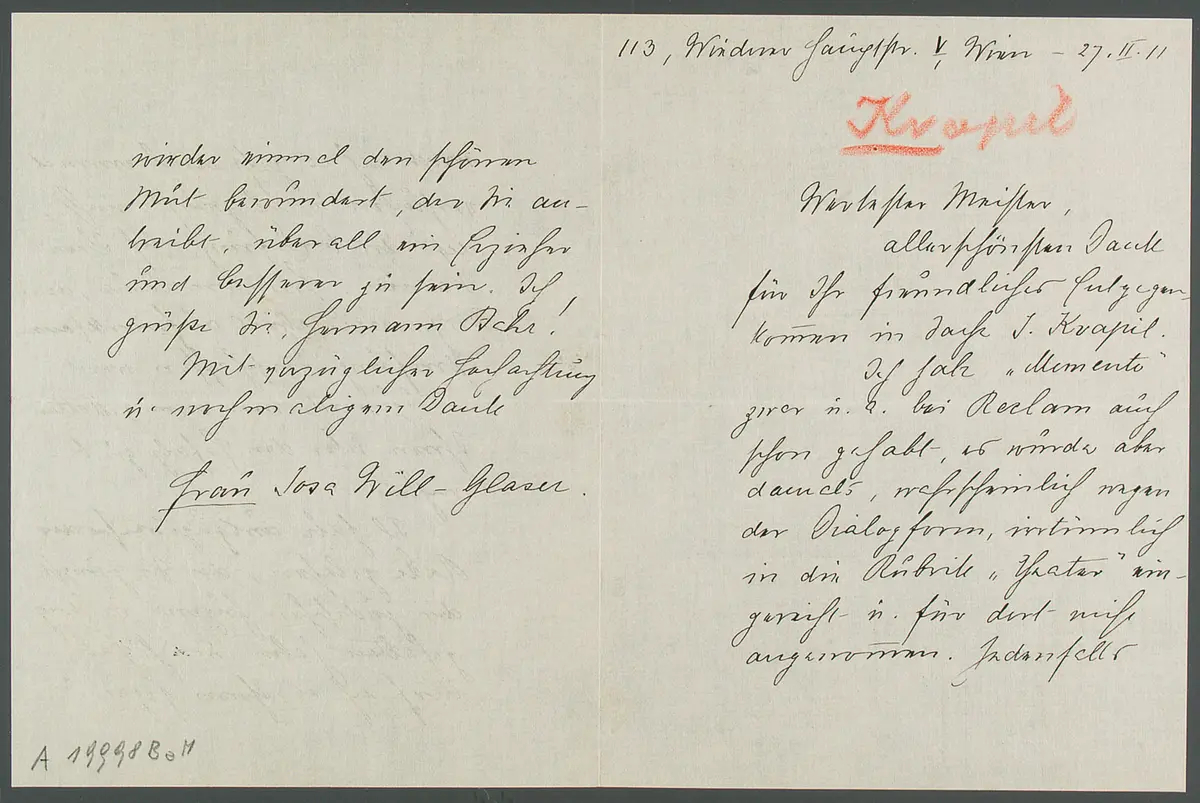 113, Wiedener Hauptstr. V, Wien – 27. II. 11
Kvapil
Wertester Meister,
allerschönsten Dank
für Ihr freundliches Entgegen-
kom̄en in Sache J. Kvapil.
Ich habe „Memento"
zwar u. a. bei Reclam auch
schon gehabt, es wurde aber
damals, wahrscheinlich wegen
der Dialogform, irrtümlich
in die Rubrik „Theater" ein-
gereiht u. für dort nicht
angenom̄en. Jedenfalls
wieder einmal den schönen
Mut bewundert, der Sie an-
treibt, überall ein Erzieher
und Besserer zu sein. Ich
grüße Sie, Hermann Bahr!
Mit vorzüglicher Hochachtung
u. nochmaligem Dank
Frau Josa Will-Glaser.
A 19998 BaM